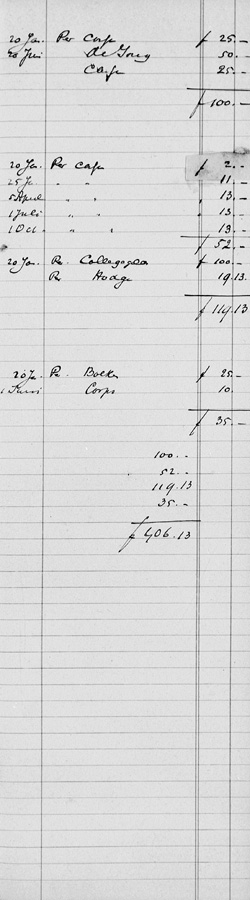 20 Jan. Per Cass f 25.-
20 Juni de Jong 50.-
Cass 25.-
f 100.-
20 Jan. Per Cass f 2.-
25 Ja " " 11.-
5 April " " 13.-
1 Juli " " 13.-
1 Oct " " 13.-
f 52.-
20 Jan. Per f 100.-
Per Hodge 19.13
f 119.13
20 Ja. Per f 25.-
1 Juni Corps 10.
f 35.-
100.-
52.-
119.13
35.-
f 406.13